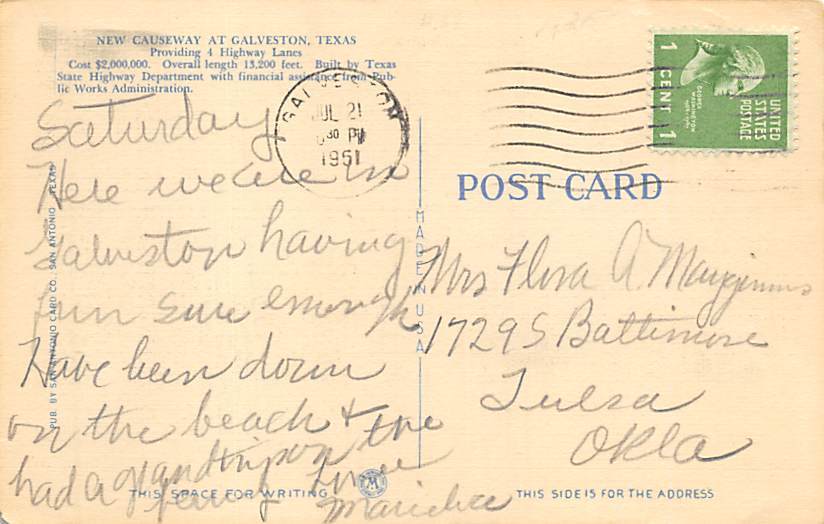 NEW CAUSEWAY AT GALVESTON, TEXAS
Providing 4 Highway Lanes
Cost $2,000,000. Overall length 13,200 feet. Built by Texas
State Highway Department with financial assistance from Pub-
lic Works Administration.
GALVESTON
JUL 21
30 PM
1951
1 CENT 1
GEORGE WASHINGTON
UNITED
STATES
POSTAGE
POST CARD
PUB. BY SAN ANTONIO CARD CO., SAN ANTONIO, TEXAS
MADE IN USA
Saturday
Here we are in
Galveston having
fun sure enough
Have been down
on the beach & the
had a grand trip on the
ferry
Love
Mrs Flora A
1729 S Baltimore
Tulsa
Okla
THIS SPACE FOR WRITING
THIS SIDE IS FOR THE ADDRESS